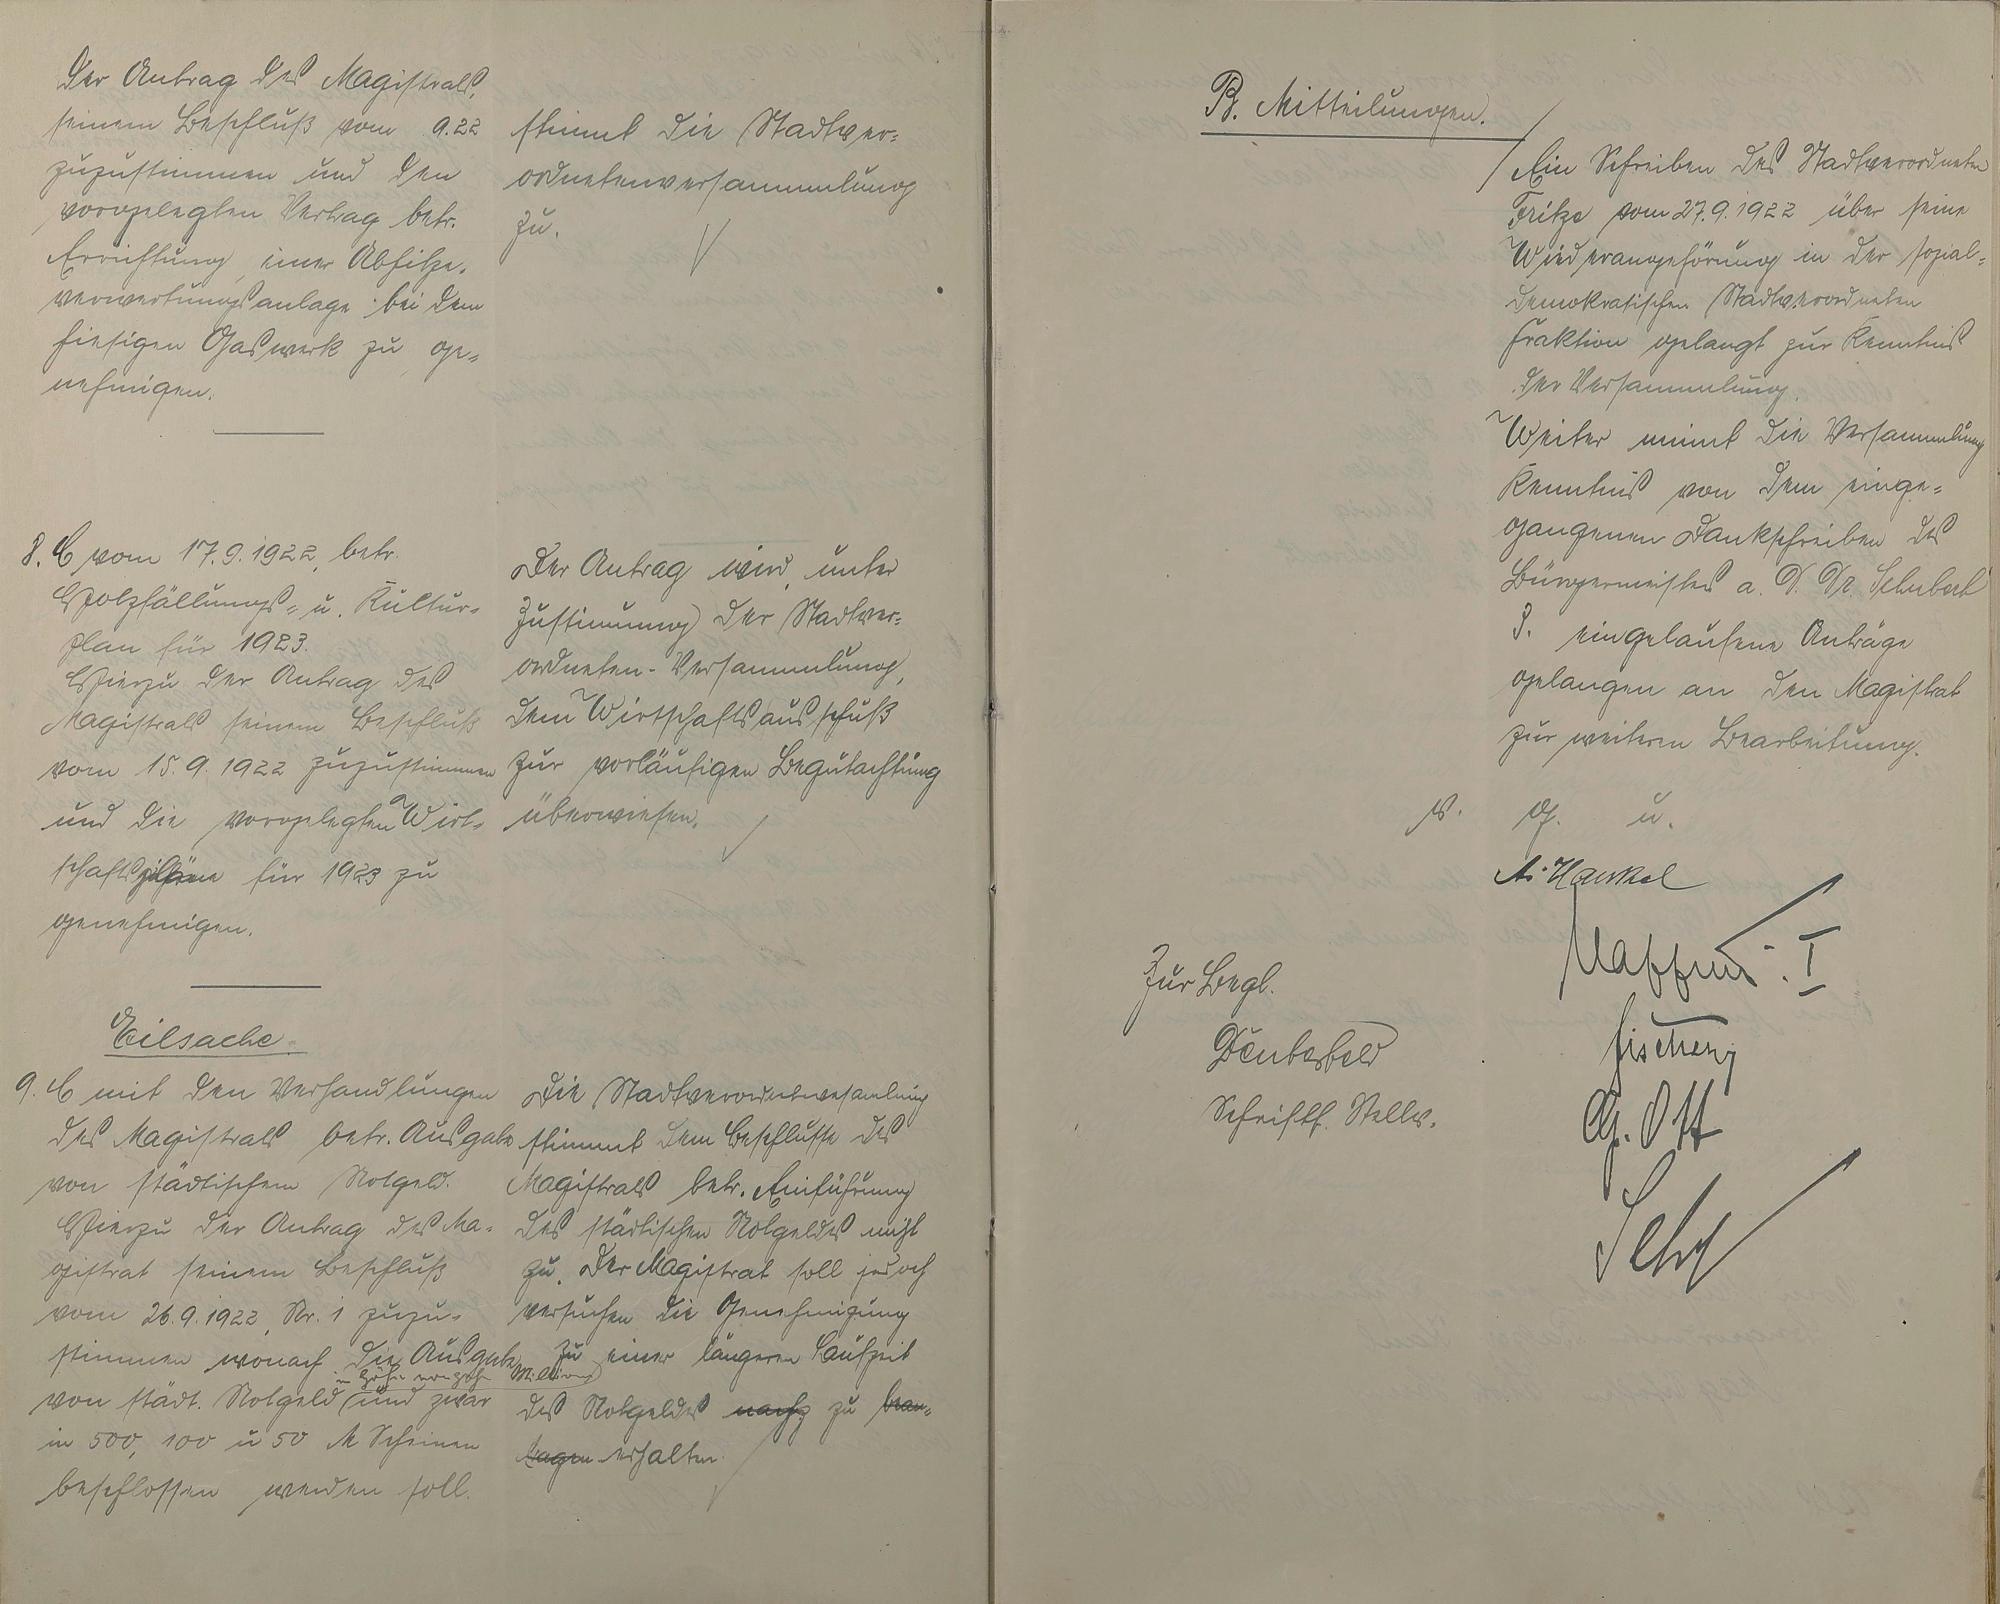 Der Antrag des Magistrats,
seinem Beschluß vom 9.22
zuzustimmen und den
vorgelegten Vertrag betr.
Errichtung einer Abhitze-
verwertungsanlage bei dem
hiesigen Gaswerk zu ge-
nehmigen.
stimmt die Stadtver-
ordnetenversammlung
zu.
8. E vom 17.9.1922, betr.
Holzfällungs- u. Kultur-
plan für 1923.
Hierzu der Antrag des
Magistrats seinem Beschluß
vom 15.9.1922 zuzustimmen
und die vorgelegten Wirt-
schafts für 1923 zu
genehmigen.
Der Antrag wird, unter
Zustimmung der Stadtver-
ordneten-Versammlung,
dem Wirtschaftsausschuß
zur vorläufigen Begutachtung
überwiesen.
Eilsache.
9. E mit den Verhandlungen
des Magistrats betr. Ausgabe
von städtischem Notgeld.
Hierzu der Antrag des Ma-
gistrat seinem Beschluß
vom 26.9.1922, Nr. 1 zuzu-
stimmen wonach die Ausgabe
in Höhe von zehn Millionen
von städt. Notgeld und zwar
in 500, 100 u 50 M Scheinen
beschlossen werden soll.
Die Stadtverordnetenversamlung
stimmt dem Beschlusse des
Magistrats betr. Einführung
des städtischen Notgeldes nicht
zu. Der Magistrat soll jedoch
versuchen die Genehmigung
zu einer längeren Laufzeit
des Notgeldes zu bean-
tragen erhalten.
B. Mitteilungen.
Ein Schreiben des Stadtverordneten
Fritze vom 27.9.1922 über seine
Wiederangehörung in der sozial-
demokratischen Stadtverordneten
Fraktion gelangt zur Kenntnis
der Versammlung.
Weiter nimmt die Versammlung
Kenntnis von dem einge-
gangenen Dankschreiben des
Bürgermeisters a. D. Dr. Schubert
3. eingelaufene Anträge
gelangen an den Magistrat
zur weiteren Bearbeitung.
v. g. u.
A. Henkel
I
Zur Begl.
Schriftf. Stellv.
Fischer
G. Ott